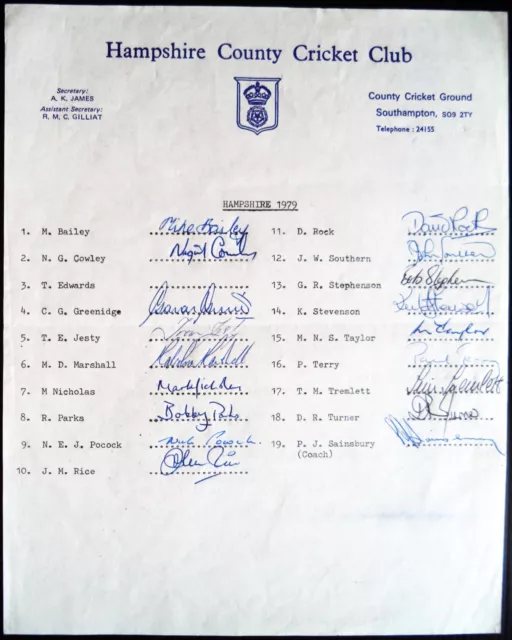 Hampshire County Cricket Club
Secretary:
A. K. JAMES
Assistant Secretary:
R. M. C. GILLIAT
County Cricket Ground
Southampton, SO9 2TY
Telephone : 24155
HAMPSHIRE 1979
1. M. Bailey Mike Bailey
2. N. G. Cowley Nigel Cowley
3. T. Edwards
4. C. G. Greenidge
5. T. E. Jesty
6. M. D. Marshall Malcolm Marshall
7 M Nicholas Mark Nicholas
8. R. Parks Bobby Parks
9. N. E. J. Pocock Nick Pocock
10. J. M. Rice John Rice
11. D. Rock David Rock
12. J. W. Southern John Southern
13. G. R. Stephenson Bob Stephenson
14. K. Stevenson Keith Stevenson
15. M. N. S. Taylor
16. P. Terry Paul Terry
17. T. M. Tremlett Tim Tremlett
18. D. R. Turner
19. P. J. Sainsbury
(Coach)